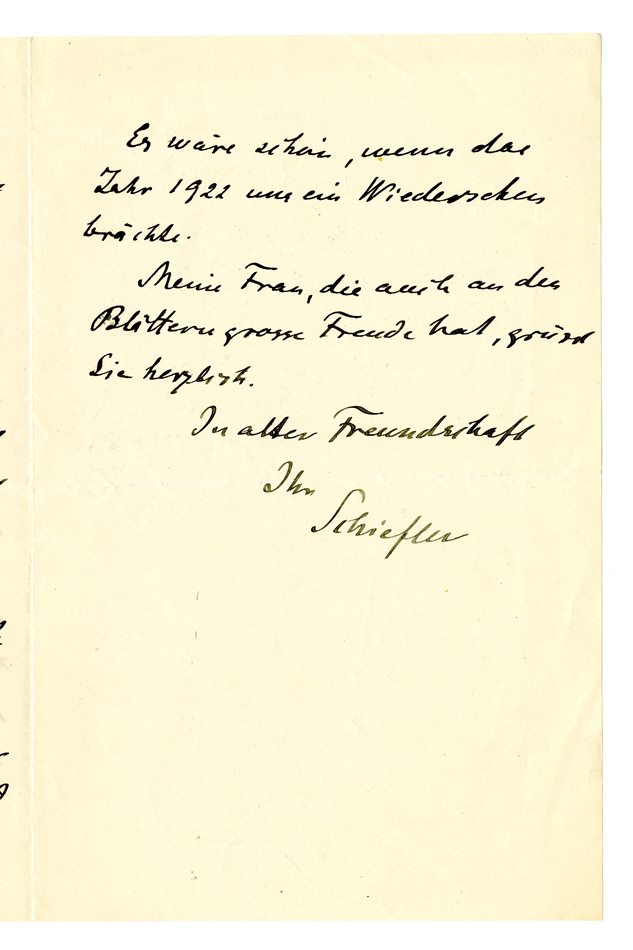 Es wäre schön, wenn das
Jahr 1922 uns ein Wiedersehen
brächte.
Meine Frau, die auch an den
Blättern grosse Freude hat, grüsst
Sie herzlich.
In alter Freundschaft
Ihr
Schiefler